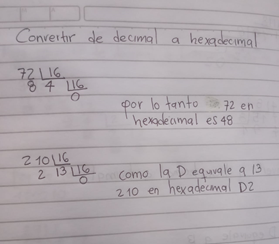 Convertir de decimal a hexadecimal
72 16
8 4 16
0
por lo tanto 72 en
hexadecimal es 48
210 16
2 13 16
0
como la D equivale a 13
210 en hexadecimal D2